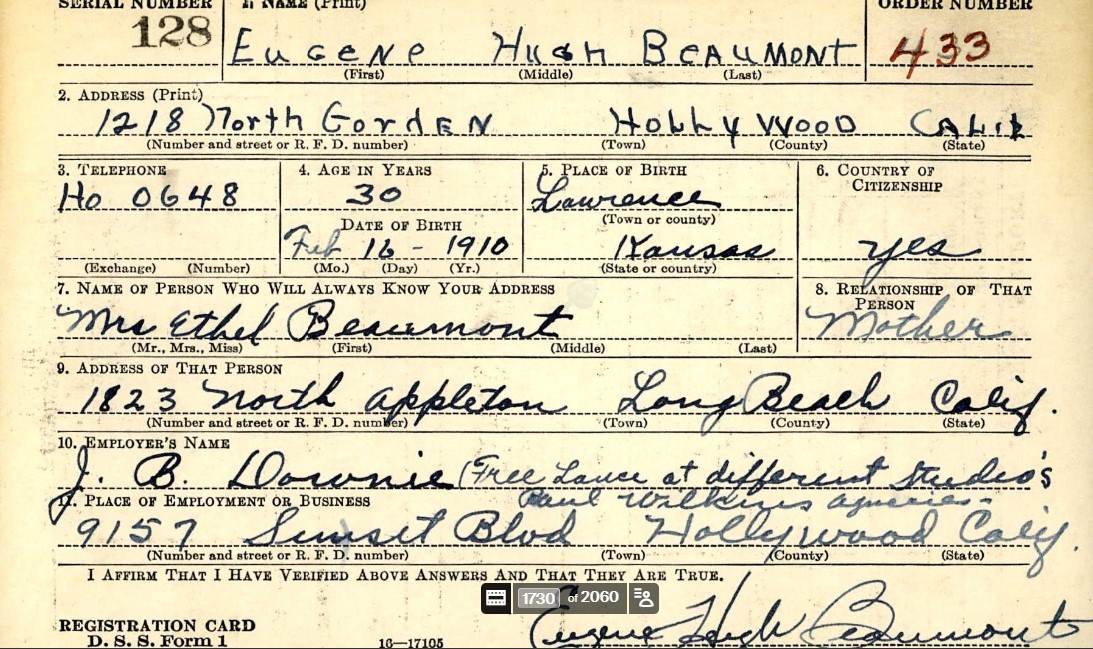 SERIAL NUMBER 1. NAME (Print) ORDER NUMBER
128 EUGENE HUGH BEAUMONT 433
(First) (Middle) (Last)
2. ADDRESS (Print)
1218 North GordEN HOLLYWOOD CALIF
(Number and street or R. F. D. number) (Town) (County) (State)
3. TELEPHONE 4. AGE IN YEARS 5. PLACE OF BIRTH 6. COUNTRY OF CITIZENSHIP
Ho 0648 30 Lawrence
DATE OF BIRTH (Town or county)
Feb 16 - 1910 Kansas yes
(Exchange) (Number) (Mo.) (Day) (Yr.) (State or country)
7. NAME OF PERSON WHO WILL ALWAYS KNOW YOUR ADDRESS 8. RELATIONSHIP OF THAT PERSON
Mrs Ethel Beaumont Mother
(Mr., Mrs., Miss) (First) (Middle) (Last)
9. ADDRESS OF THAT PERSON
1823 North Appleton Long Beach Calif.
(Number and street or R. F. D. number) (Town) (County) (State)
10. EMPLOYER'S NAME
J. B. Downie (Free Lance at different Studio's
Paul Wilkins
11. PLACE OF EMPLOYMENT OR BUSINESS
9157 Sunset Blvd Hollywood Calif.
(Number and street or R. F. D. number) (Town) (County) (State)
I AFFIRM THAT I HAVE VERIFIED ABOVE ANSWERS AND THAT THEY ARE TRUE.
1730 of 2060
Eugene Hugh Beaumont
REGISTRATION CARD
D. S. S. Form 1 16—17105